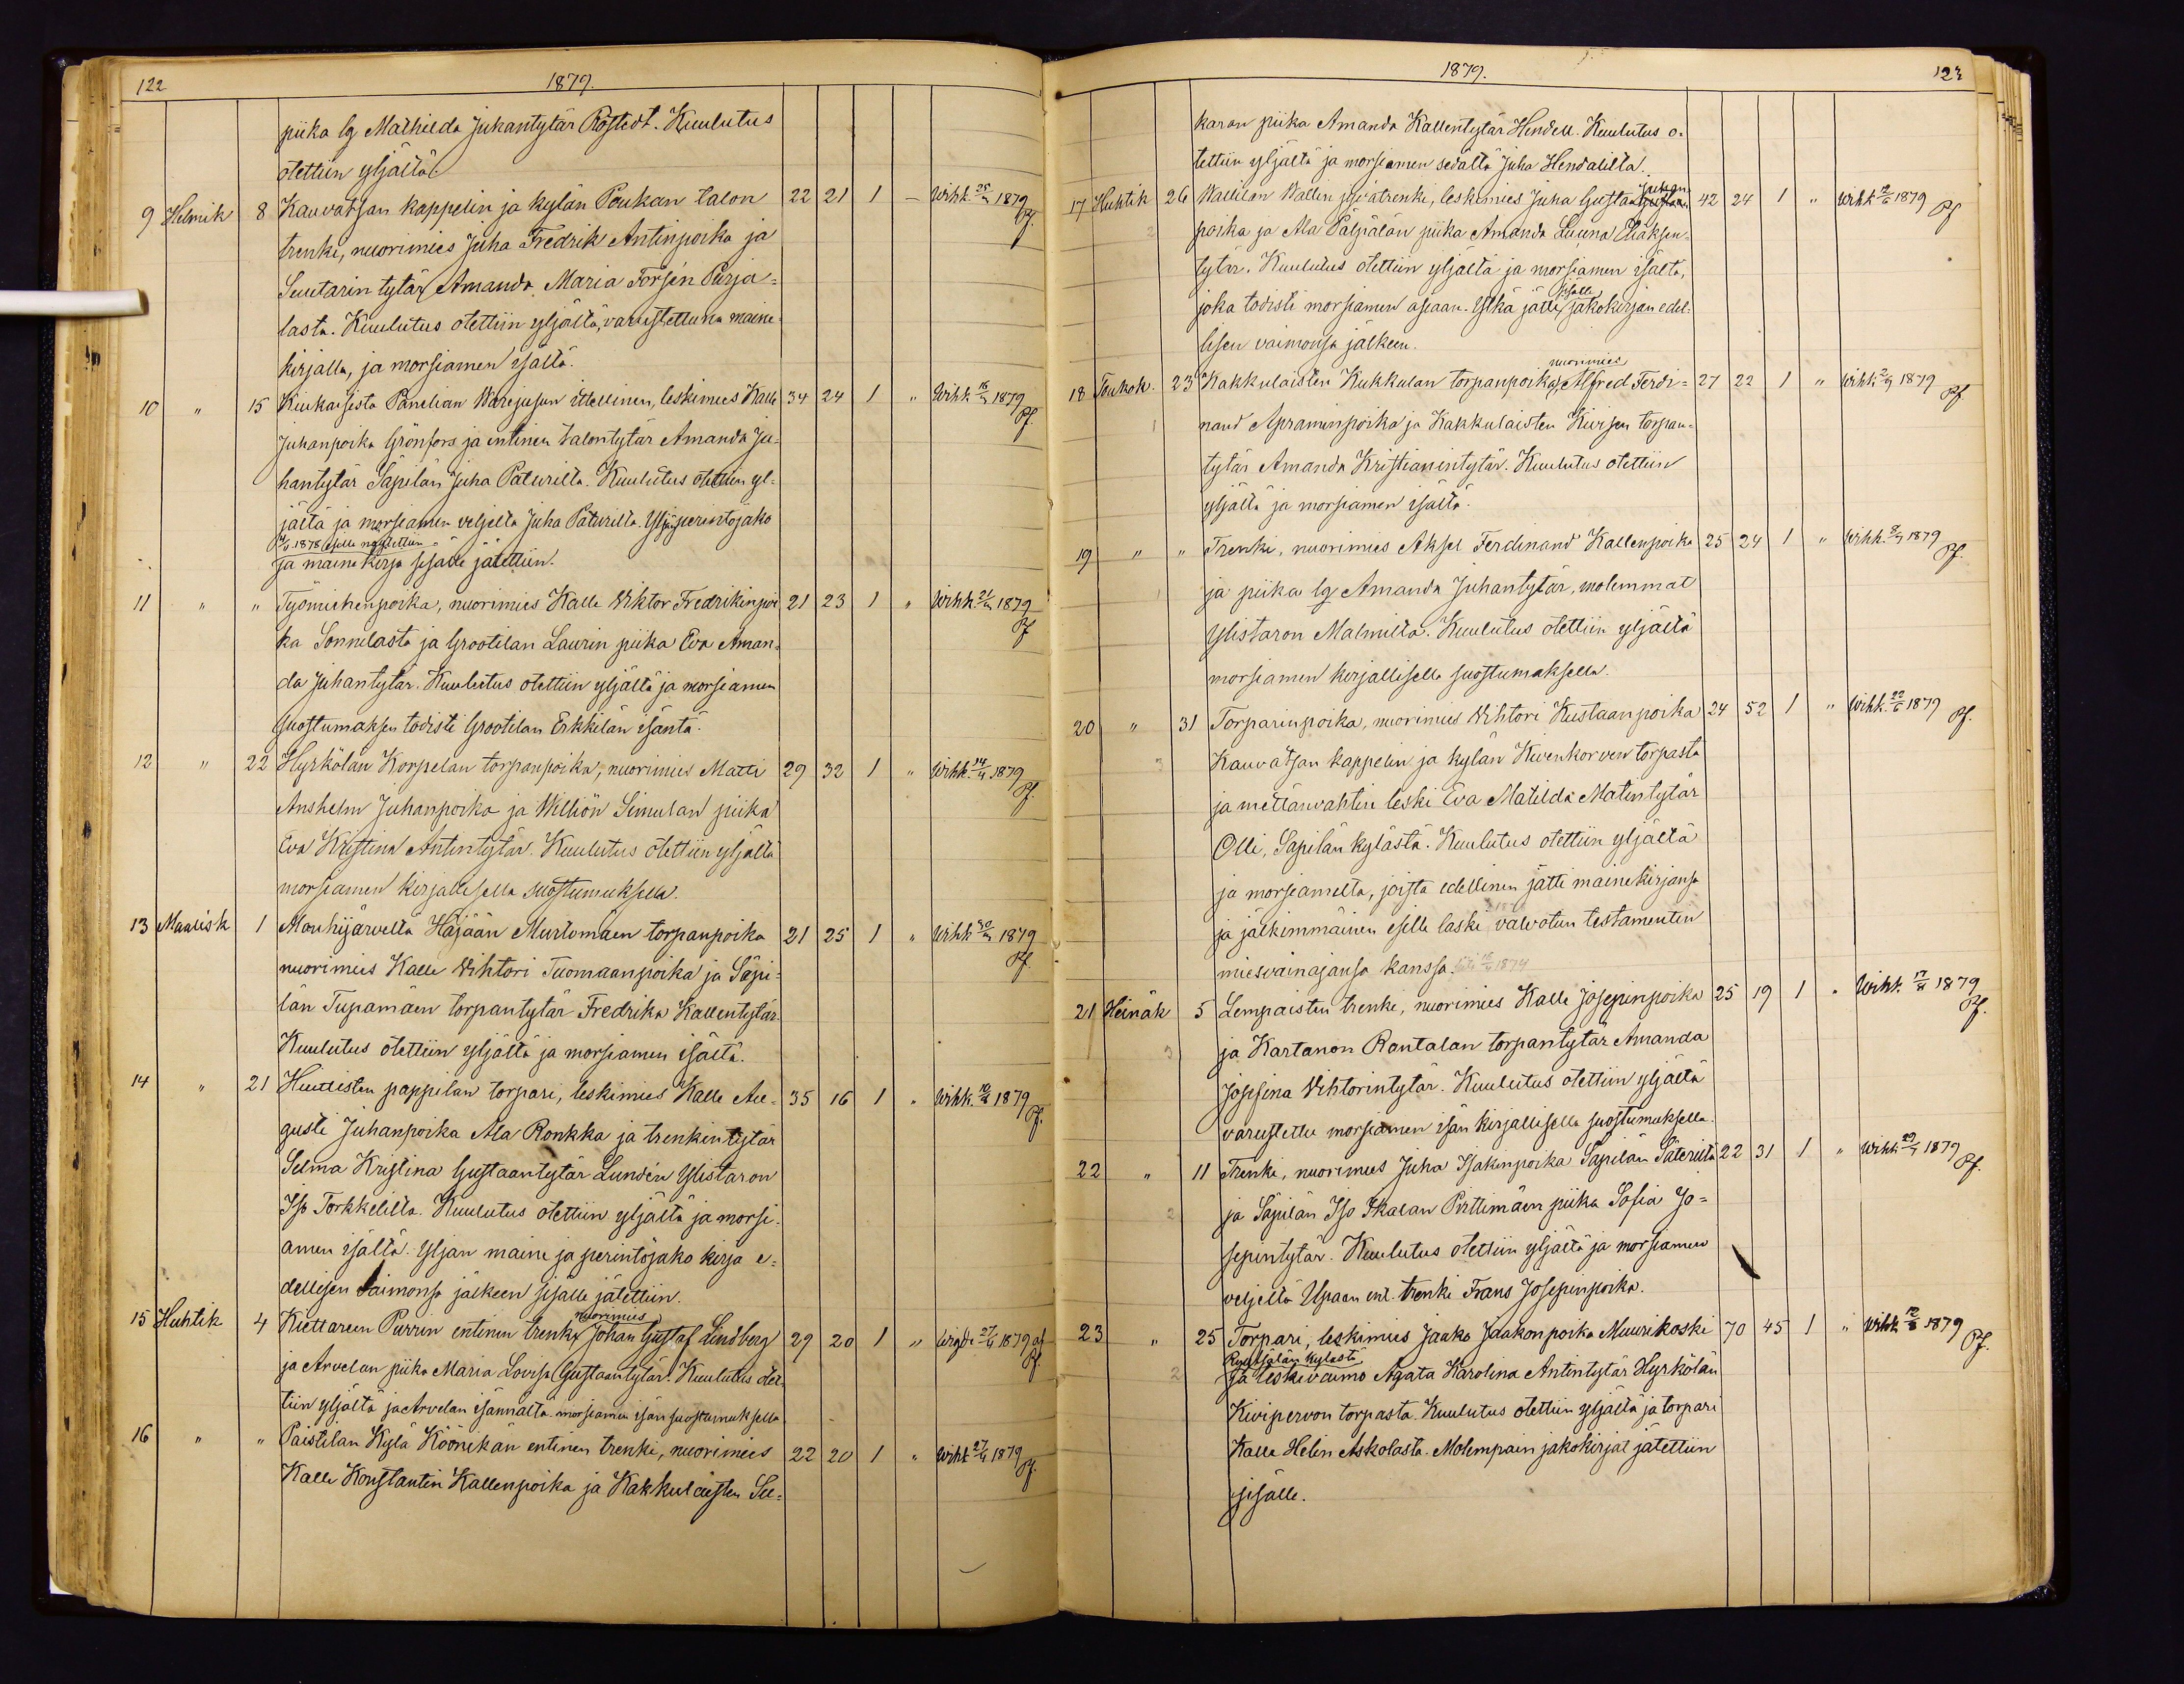 122
1879.
piika lg Mathilda Juhantytär Röstedt. Kuulutus
otettiin yljältä.
9 Helmik 8 Kauvatsan kappelin ja kylän Poukan talon 22 21 1 – Wihk. 25/3 1879 Pf.
trenki, nuorimies Juha Fredrik Antinpoika ja
Suutarin tytär Amanda Maria Forsén Purja=
lasta. Kuulutus otettiin yljältä, varustettuna maine
kirjalla, ja morsiamen isältä.
10 " 15 Kiukaisista Panelian itsellinen, leskimies Kalle 34 24 1 " Wihk. 1879 Pf.
Juhanpoika Grönfors ja entinen talontytär Amanda Ju=
hantytär Säpilän Juha Paturilta. Kuulutus otettiin yl=
jältä ja morsiamen veljeltä Juha Paturilta. Yljän perintöjako
1878 esille näytettiin
ja maine kirja sisälle jätettiin.
11 " " Työmiehenpoika, nuorimies Kalle Viktor Fredrikinpoi 21 23 1 " Wihk. 1879 Pf
ka Sonnilasta ja Grootilan Laurin piika Eva Aman=
da Juhantytär. Kuulutus otettiin yljältä ja morsiamen
suostumuksen todisti Grootilan Erkkilän isäntä.
12 " 22 Hyrkölän Korpelan torpanpoika, nuorimies Matti 29 32 1 " Wihk. 14/4 1879 Pf.
Anshelm Juhanpoika ja Williön Simulan piika
Eva Kristina Antintytär. Kuulutus otettiin yljältä
morsiamen kirjallisella suostumuksella.
13 Maalisk 1 Mouhijärveltä Häijään Murtomäen torpanpoika 21 25 1 " Wihk 1879 Pf.
nuorimies Kalle Vihtori Tuomaanpoika ja Säpi=
län Tupamäen torpantytär Fredrika Kallentytär.
Kuulutus otettiin yljältä ja morsiamen isältä.
14 " 21 Huittisten pappilan torpari, leskimies Kalle Au= 35 16 1 " Wihk. 1879 Pf.
gusti Juhanpoika Ala Ronkka ja trenkintytär
Selma Kristina Gustaantytär Lundén Ylistaron
Iso Torkkelilta. Kuulutus otettiin yljältä ja morsi=
amen isältä. Yljän maine ja perintöjako kirja e=
dellisen vaimonsa jälkeen sisälle jätettiin.
15 Huhtik 4 Kiettareen Purrin entinen trenki, nuorimies Johan Gustaf Lindberg 29 20 1 " 27/4 1879 af Pf.
ja Arvelan piika Maria Lovisa Gustaantytär. Kuulutus otet
tiin yljältä ja Arvelan isännältä morsiamen isän suostumuksella
16 " " Paistilan Kylä Köönikän entinen trenki, nuorimies 22 20 1 " Wihk. 27/4 1879 Pf.
Kalle Konstantin Kallenpoika ja Kakkulaisten Su=
1879.
123
karan piika Amanda Kallentytär Hendell. Kuulutus o=
tettiin yljältä ja morsiamen sedältä Juha Hendalilta.
17 Huhtik 26 Wallilan Wallin leskimies Juha Gusta Juhan 42 24 1 " Wihk 1879 Pf
poika ja Ala Pälpälän piika Amanda Eliaksen=
tytär. Kuulutus otettiin yljältä ja morsiamen isältä,
joka todisti morsiamen asiaan. Ylkä jätti sisälle jakokirjan edel=
lisen vaimonsa jälkeen.
18 Toukok. 23 Kakkulaisten Kukkulan torpanpoika, nuorimies Alfred Ferdi= 27 22 1 " Wihk. 1879 Pf
nand Apraminpoika ja Kakkulaisten Kiirsen torpan=
tytär Amanda Kristianintytär. Kuulutus otettiin
yljältä ja morsiamen isältä.
19 " " Trenki, nuorimies Aksel Ferdinand Kallenpoika 25 24 1 " Wihk. 1879 Pf.
ja piika lg Amanda Juhantytär, molemmat
Ylistaron Malmilta. Kuulutus otettiin yljältä
morsiamen kirjallisella suostumuksella.
20 " 31 Torparinpoika, nuorimies Vihtori Kustaanpoika 24 52 1 " Wihk. 22/6 1879 Pf.
Kauvatsan kappelin ja kylän Kivenkorven torpasta
ja mettänvahtin leski Eva Matilda Matintytär
Olli, Säpilän kylästä. Kuulutus otettiin yljältä
ja morsiamelta, joista edellinen jätti mainekirjansa
ja jälkimmäinen esille laski valvotun testamentin
miesvainajansa kanssa. 1874
21 Heinäk 5 Lempaisten trenki, nuorimies Kalle Josepinpoika 25 19 1 " Wihk. 17/8 1879 Pf.
ja Kartanon Rantalan torpantytär Amanda
Josefina Vihtorintytär. Kuulutus otettiin yljältä
varustettu morsiamen isän kirjallisella suostumuksella.
22 " 11 Trenki, nuorimies Juha Isakinpoika Säpilän Säteriltä 22 31 1 " Wihk. 1879 Pf.
ja Säpilän Iso Ikalan Pirttimäen piika Sofia Jo=
sepintytär. Kuulutus otettiin yljältä ja morsiamen
veljeltä Upaan ent. trenki Frans Josepinpoika.
23 " 25 Torpari, leskimies Jaako Jaakonpoika Muurikoski 70 45 1 " Wihk. 1879 Pf.
kylästä
ja leskivaimo Agata Karolina Antintytär Hyrkölän
Kivipervon torpasta. Kuulutus otettiin yljältä ja torpari
Kalle Helin Askolasta. Molempain jakokirjat jätettiin
sisälle.